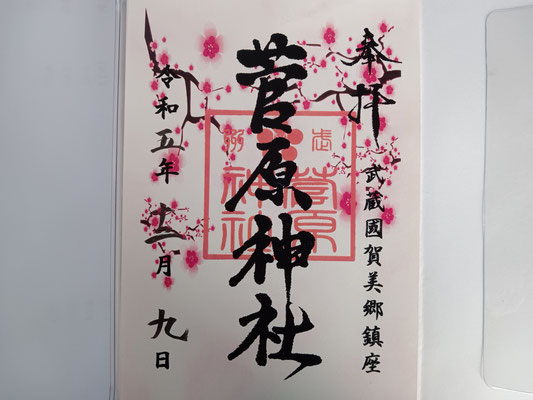 奉拝
武蔵國賀美郷鎮座
菅原神社
武州
菅原
神社
令和五年十二月九日